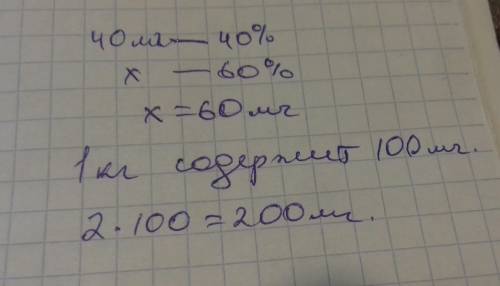 40 мг — 40%
x — 60%
x = 60 мг
1 кг содержит 100 мг.
2 · 100 = 200 мг.